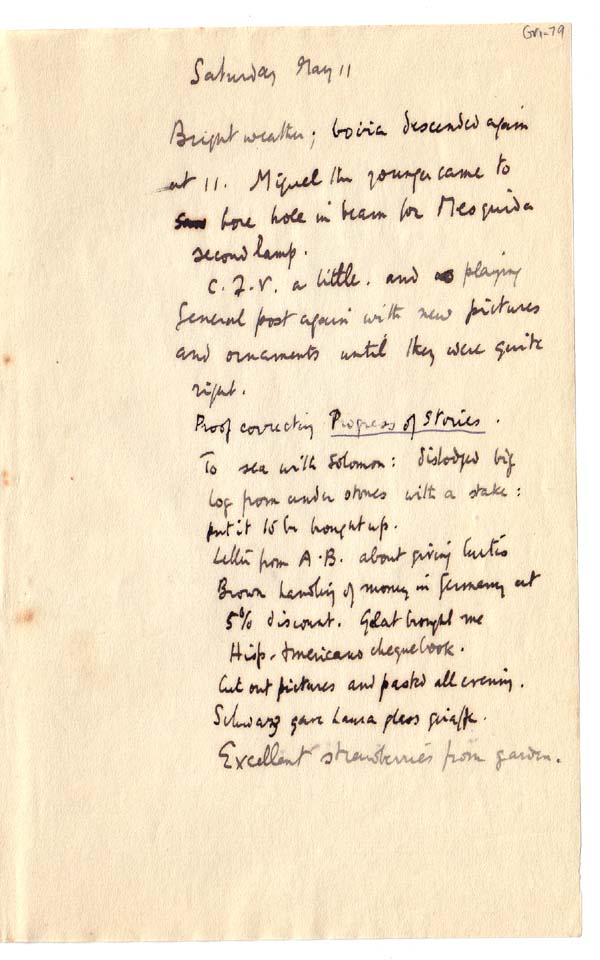 GM-79
Saturday May 11
Bright weather; boira descended again
at 11. Miguel the younger came to
bore hole in beam for Mesquida
second lamp.
C. J. V. a little. and playing
General post again with new pictures
and ornaments until they were quite
right.
Proof correcting Progress of Stories.
To sea with Solomon: dislodged big
log from under stones with a stake:
put it to be brought up.
Letter from A.B. about giving Curtis
Brown handling of money in Germany at
5% discount. Gelat brought me
Hisp-Americano cheque book.
Cut out pictures and pasted all evening.
Schwarz gave Laura glass giraffe.
Excellent strawberries from garden.